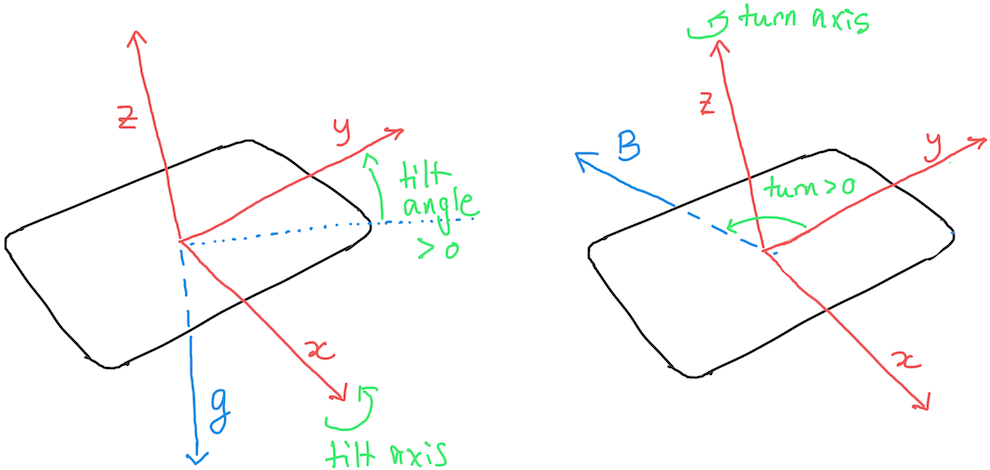 z
y
tilt
angle
> 0
x
g
tilt axis
turn axis
z
B
y
turn>0
x